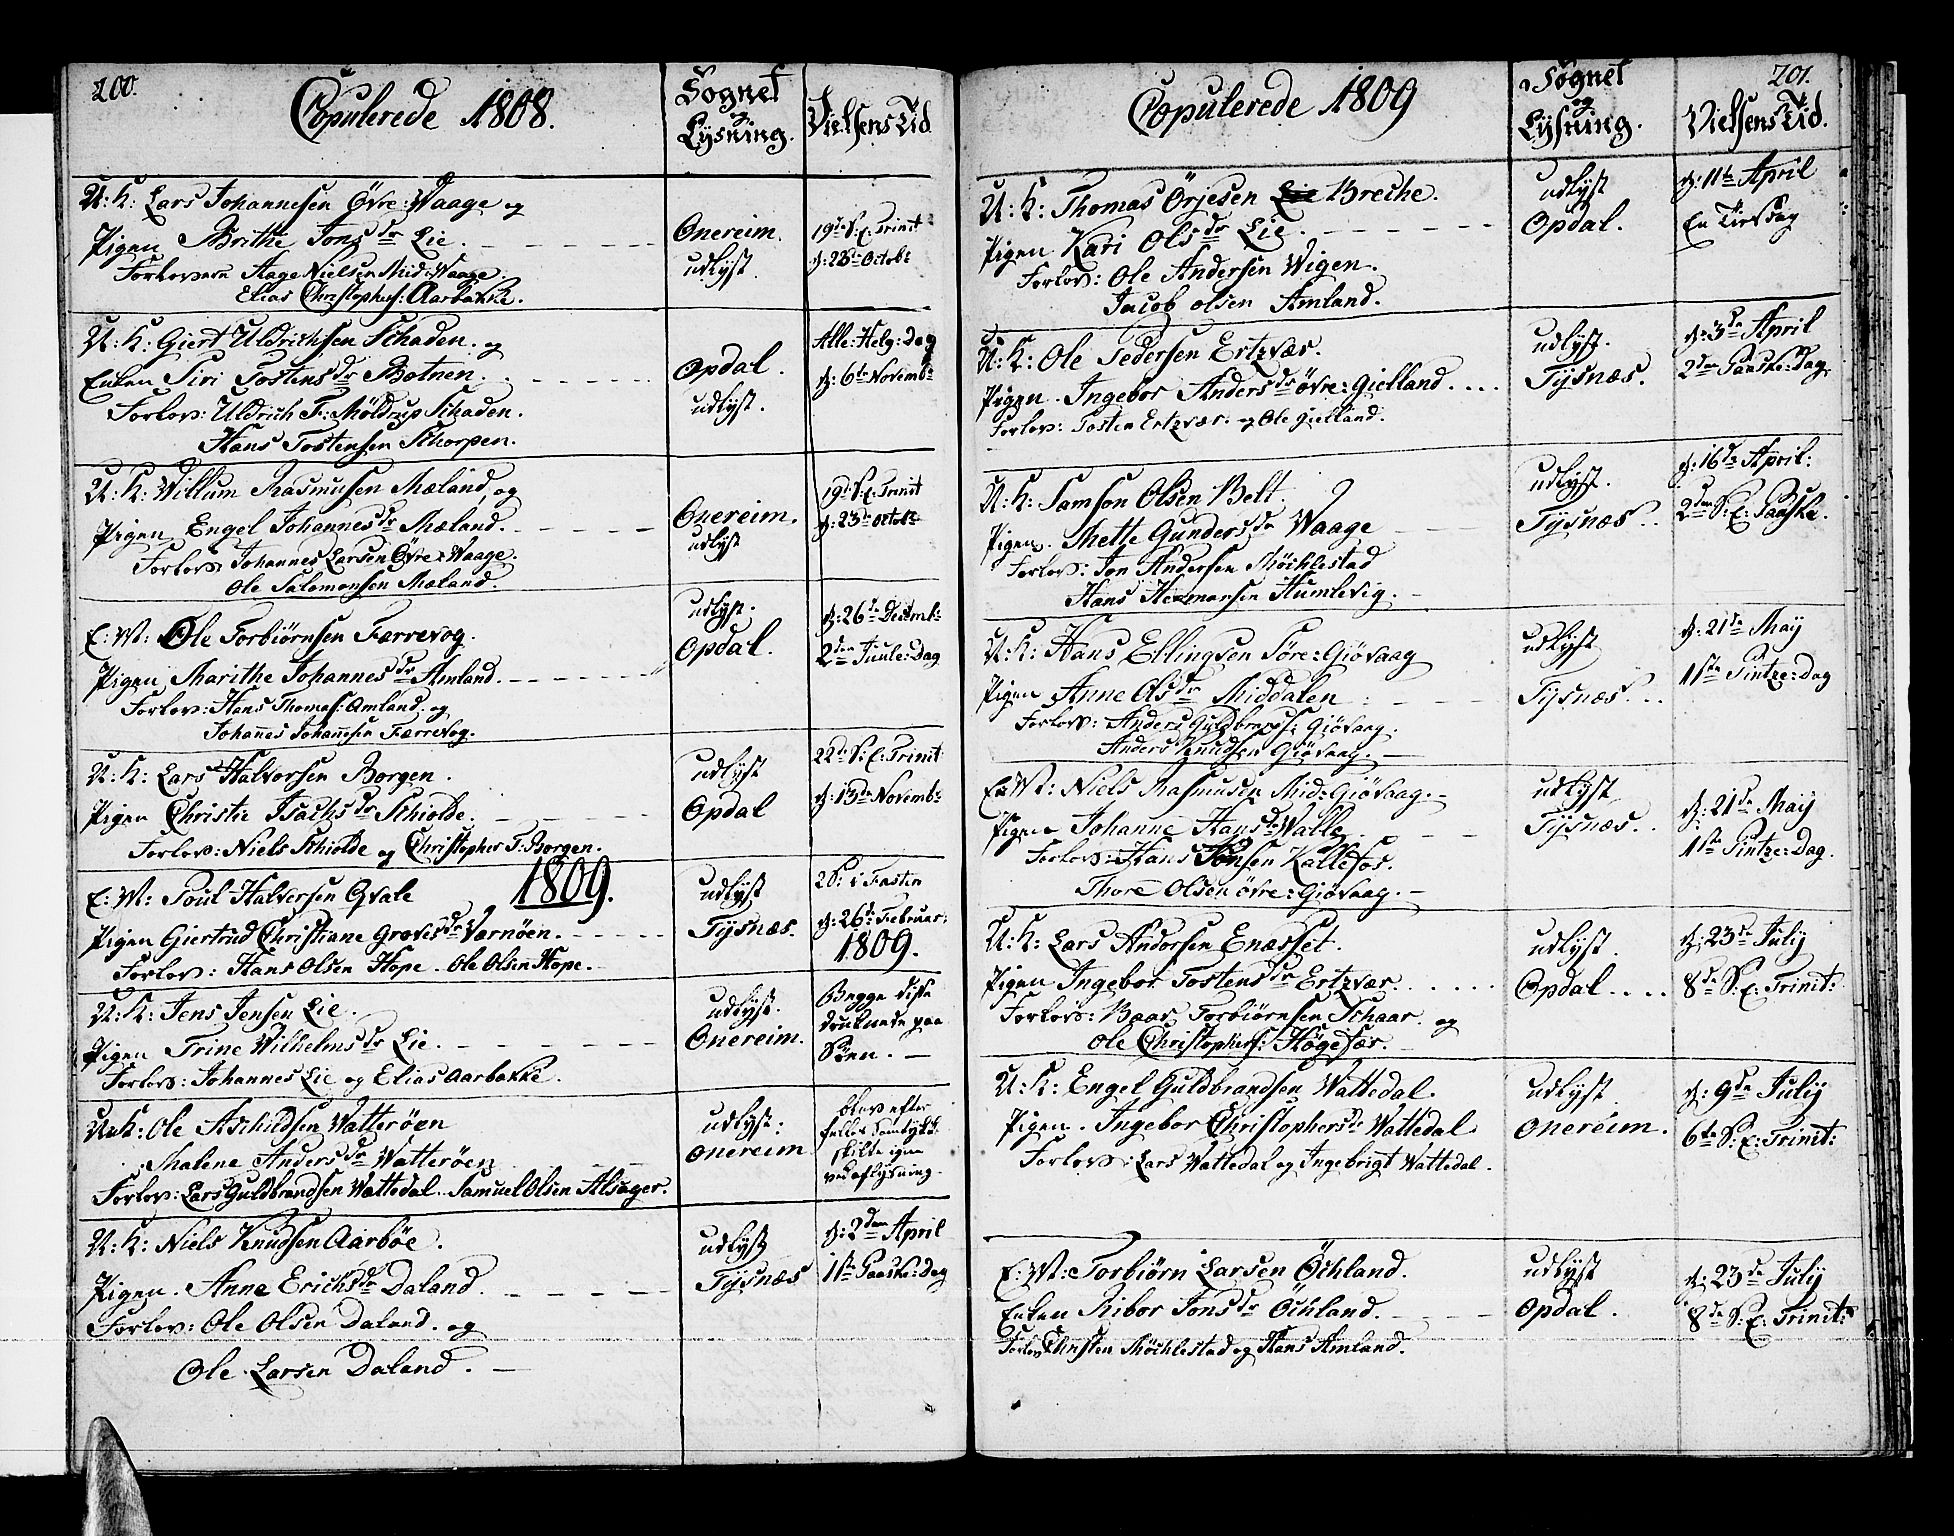 200.
Copulerede 1808.
Sognet
og
Lysning.
Vielsens Tid.
U: K: Lars Johannesen Øvre=Waage og
Pigen Brithe Jons dr Lie.
Forlovere Aage Nielsen Mid=Waage.
Elias Christophers: Aarbakke.
Onereim.
udlyst.
19de S: E: Trinit
d: 23de Octobr
U: K: Giert Uldrichsen Schaden. og
Enken Siri Tostens dr Botnen.
Forlov: Uldrich F: Möldrup Schaden.
Hans Tostensen Schorpen.
Opdal.
udlyst.
Alle=Helg: Dag
d: 6te Novembr
U: K: Willum Rasmusen Mæland, og
Pigen Engel Johannes dr Mæland.
Forlov: Johannes Larsen Øvre=Waage.
Ole Salomonsen Mæland.
Onereim.
udlyst
19de S: E: Trinit
d: 23de Octobr
E: M: Ole Torbiørnsen Færrevog.
Pigen Marithe Johannes dr Amland.
Forlov: Hans Thomas: Amland. og
Johannes Johannesen Færrevog.
udlyst.
Opdal.
d: 26de Decembr
2den Juule=Dag
U: K: Lars Halvorsen Borgen.
Pigen Christie Isachs dr Schiolde.
Forlov: Niels Schiolde og Christopher T: Borgen.
udlyst
Opdal
22de S: E: Trinit
d: 13de Novembr
1809.
E: M: Poul Halversen Qvale
Pigen Giertrud Christiane Greves dr Varnöen.
Forlov: Hans Olsen Hope. Ole Olsen Hope.
udlyst
Tysnæs.
2 S: i Fasten
d: 26de Februar:
1809.
U: K: Jens Jensen Lie.
Pigen Trine Wilhelms dr Lie.
Forlov: Johannes Lie og Elias Aarbakke.
udlyst.
Onereim.
Begge disse
druknede paa
Söen.
U: K: Ole Aschildsen Watteröen
Malene Anders dr Watteröen
Forlov: Lars Guldbrandsen Wattedal. Samuel Olsen Alsager.
udlyst:
Onereim
blev efter
felles Samtykke
skilte igen
ved aflysning.
U: K: Niels Knudsen Aarböe.
Pigen. Anne Erichs dr Daland.
Forlov: Ole Olsen Daland. og
Ole Larsen Daland.
udlyst
Tysnæs
d: 2den April
1ste Paaske=Dag
201.
Copulerede 1809
Sognet
og
Lysning.
Vielsens Tid.
U: K: Thomas Örjesen Lie Breche.
Pigen Kari Ols dr Lie.
Forlov: Ole Andersen Wigen.
Jacob Olsen Amland.
udlyst
Opdal.
d: 11te April
En Tirsdag
U: K: Ole Pedersen Ertzvær.
Pigen. Ingebor Anders dr Øvre=Gielland
Forlov: Tosten Ertzvær. og Ole Gielland.
udlyst.
Tysnæs.
d: 3de April
2den Paaske=Dag.
U: K: Samson Olsen Belt.
Pigen. Mette Gunders dr Waage
Forlov: Jon Andersen Möchlestad
Hans Hermansen Humlevig.
udlyst.
Tysnæs.
d: 16de April:
2den S: E: Paaske.
U: K: Hans Ellingsen Søre=Giövaag
Pigen Anne Ols dr Middalen
Forlov: Anders Guldbrands: Giövaag.
Anders Knudsen Giövaag.
udlyst
Tysnæs.
d: 21de May
1ste Pintze=Dag
E: M: Niels Rasmusen Mid=Giövaag.
Pigen Johanne Hans dr Walle
Forlov: Hans Tönsen Kallefos.
Thore Olsen Øvre=Giövaag.
udlyst
Tysnæs.
d: 21de May
1ste Pintze=Dag.
U: K: Lars Andersen Enæsset.
Pigen Ingebor Tostens dr Ertzvær.
Forlov: Baar Torbiörnsen Schaar. og
Ole Christophers: Högefær.
udlyst.
Opdal.
d: 23de July
8de S: E: Trinit:
U: K: Engel Guldbrandsen Wattedal.
Pigen. Ingebor Christophers dr Wattedal
Forlov: Lars Wattedal og Ingebrigt Wattedal.
udlyst.
Onereim.
d: 9de July
6te S: E: Trinit:
E: M: Torbiörn Larsen Öchland.
Enken Ribor Jons dr Öchland.
Forlov: Christen Möchlestad og Hans Amland.
udlyst
Opdal.
d: 23de July
8de S: E: Trinit: